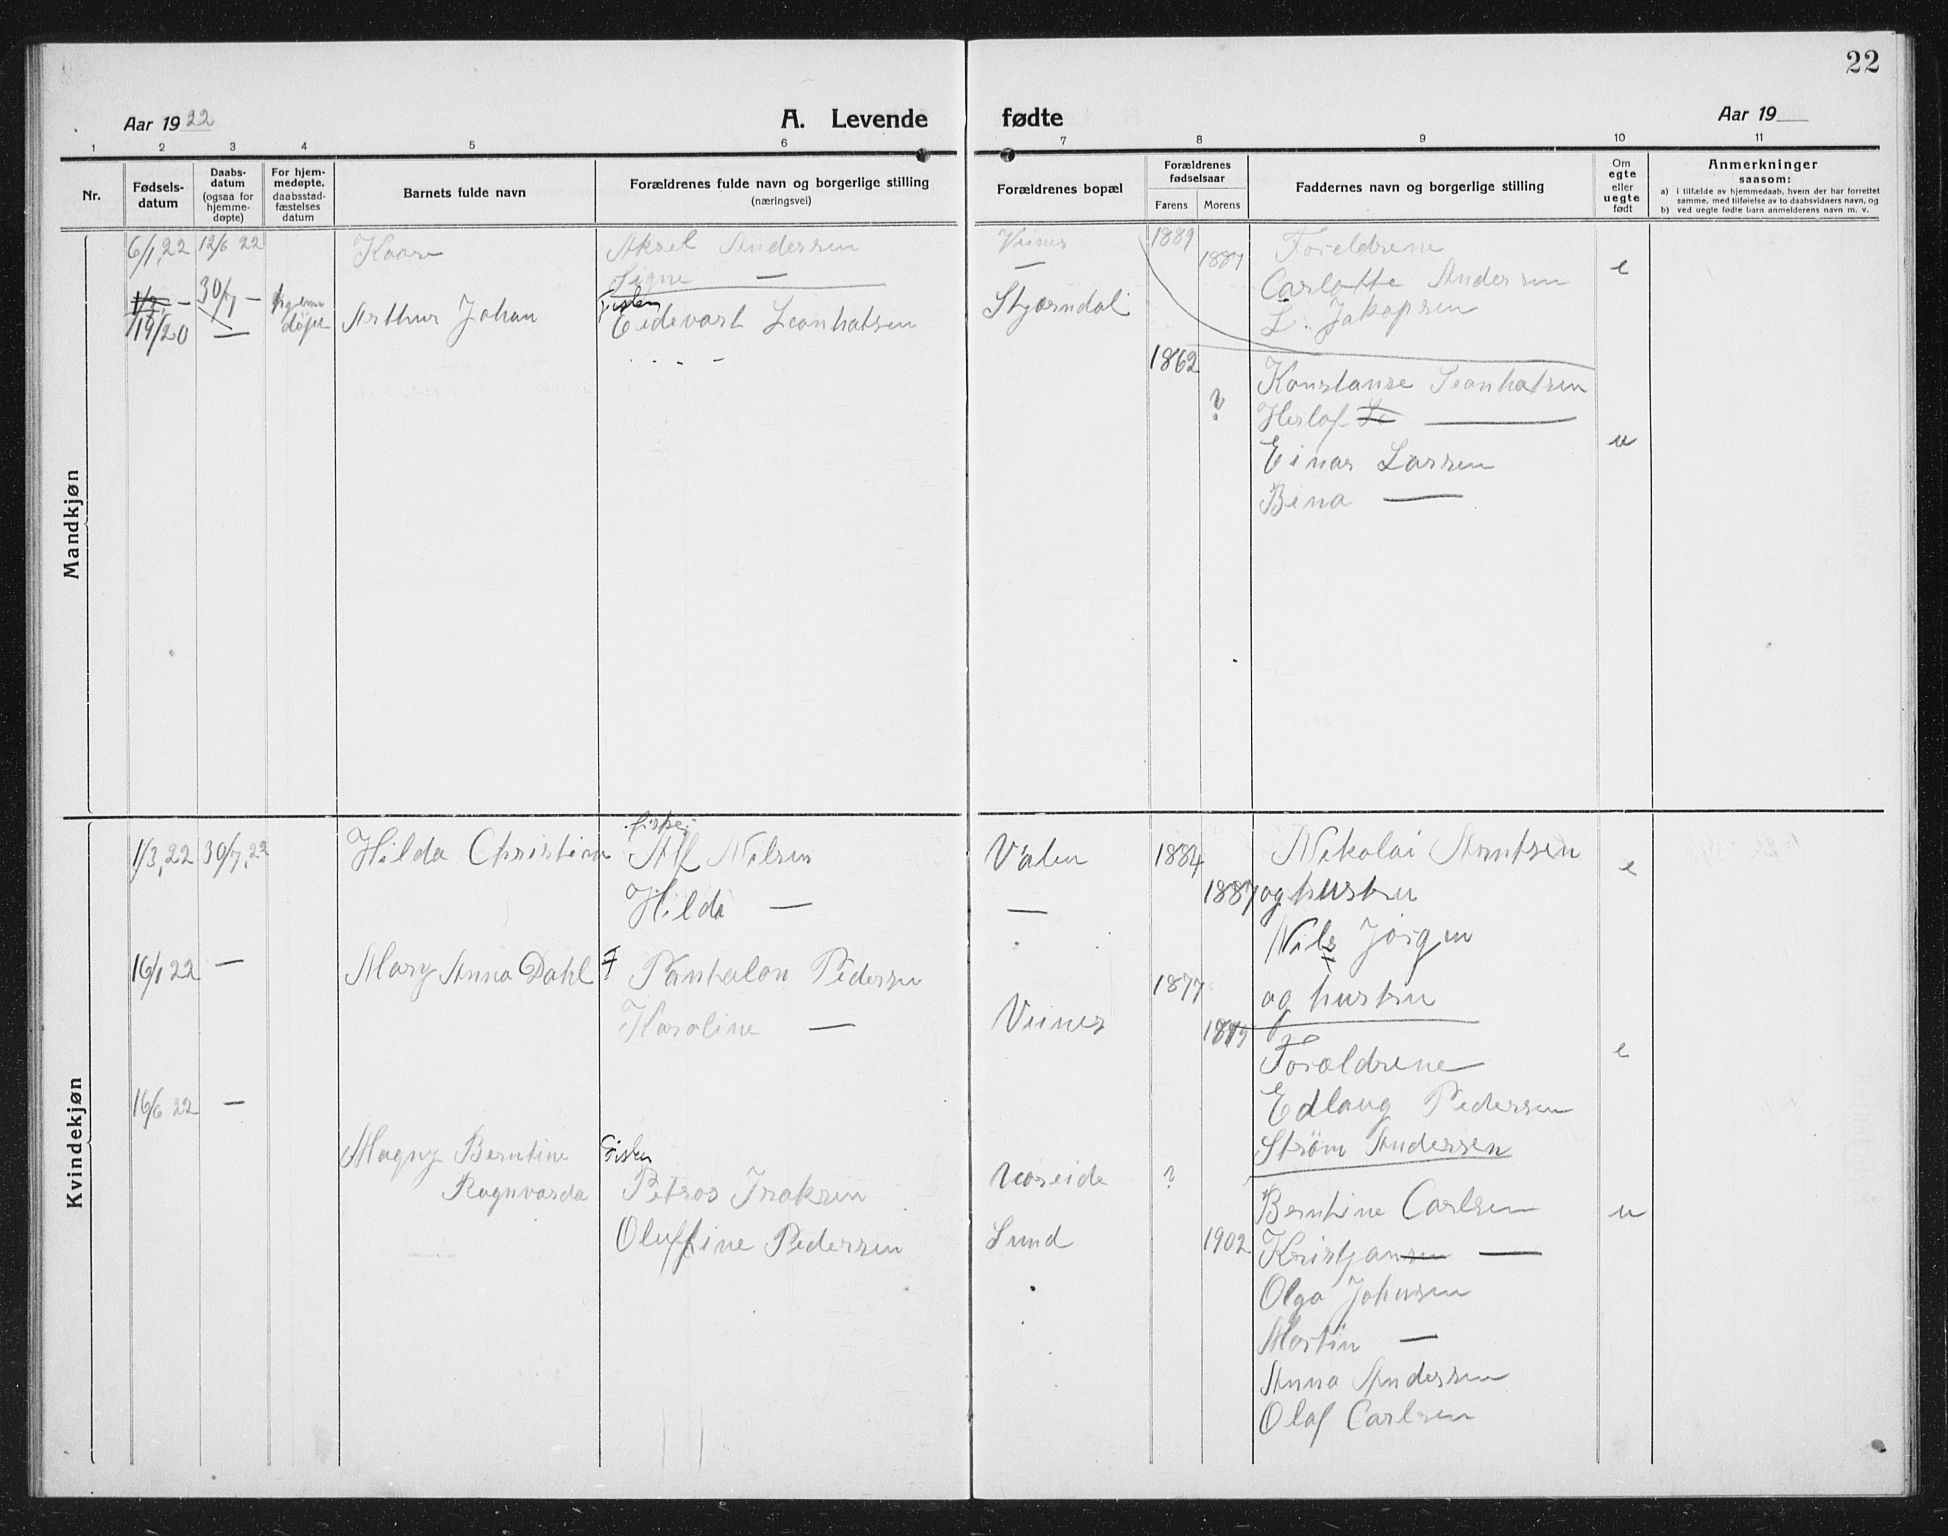 22
Aar 1922
A. Levende
fødte
Aar 19
1 2 3 4 5 6 7 8 9 10 11
Nr.
Fødsels-
datum
Daabs-
datum
(ogsaa for
hjemme-
døpte)
For hjem-
medøpte,
daabsstad-
fæstelses
datum
Barnets fulde navn
Forældrenes fulde navn og borgerlige stilling
(næringsvei)
Forældrenes bopæl
Forældrenes
fødselsaar
Farens Morens
Faddernes navn og borgerlige stilling
Om
egte
eller
uegte
født
Anmerkninger
saasom:
a) i tilfælde av hjemmedaab, hvem der har forrettet
samme, med tilføielse av to daabsvidners navn, og
b) ved uegte fødte barn anmelderens navn m. v.
Mandkjøn
6/1,22 12/6 22 Kaare Aksel Andersen Veines 1889 Foreldrene
Signe — — 1887 Carlotte Andersen e
L. Jakopsen
30/7 — hjemmedøpt Arthur Johan Fisker Eidevart Leonhatsen Stjørndal
19/20 —
1862 Konstanse Leonhatsen
? Herlof —
Einar Larsen u
Bina —
Kvindekjøn
1/3,22 30/7,22 Hilda Christina fisker Alf Nilsen Valen 1884 Nikolai Arntsen e
Hilda — — 1887 og hustru
Nils Jørgen
og hustru
16/1 22 — Mary Anna Dahl F Pantalon Pedersen 1877
Karoline — Veines
Forældrene e
Edlaug Pedersen
Strøm Andersen
16/6 22 —
Magny Berntine
Ragnvarda
Fisker
Petros Isaksen ?
Berntine Carlsen u
Oluffine Pedersen Sund 1902 Kristjansen —
Olga Johnsen
Martin —
Anna Andersen
Olaf Carlsen